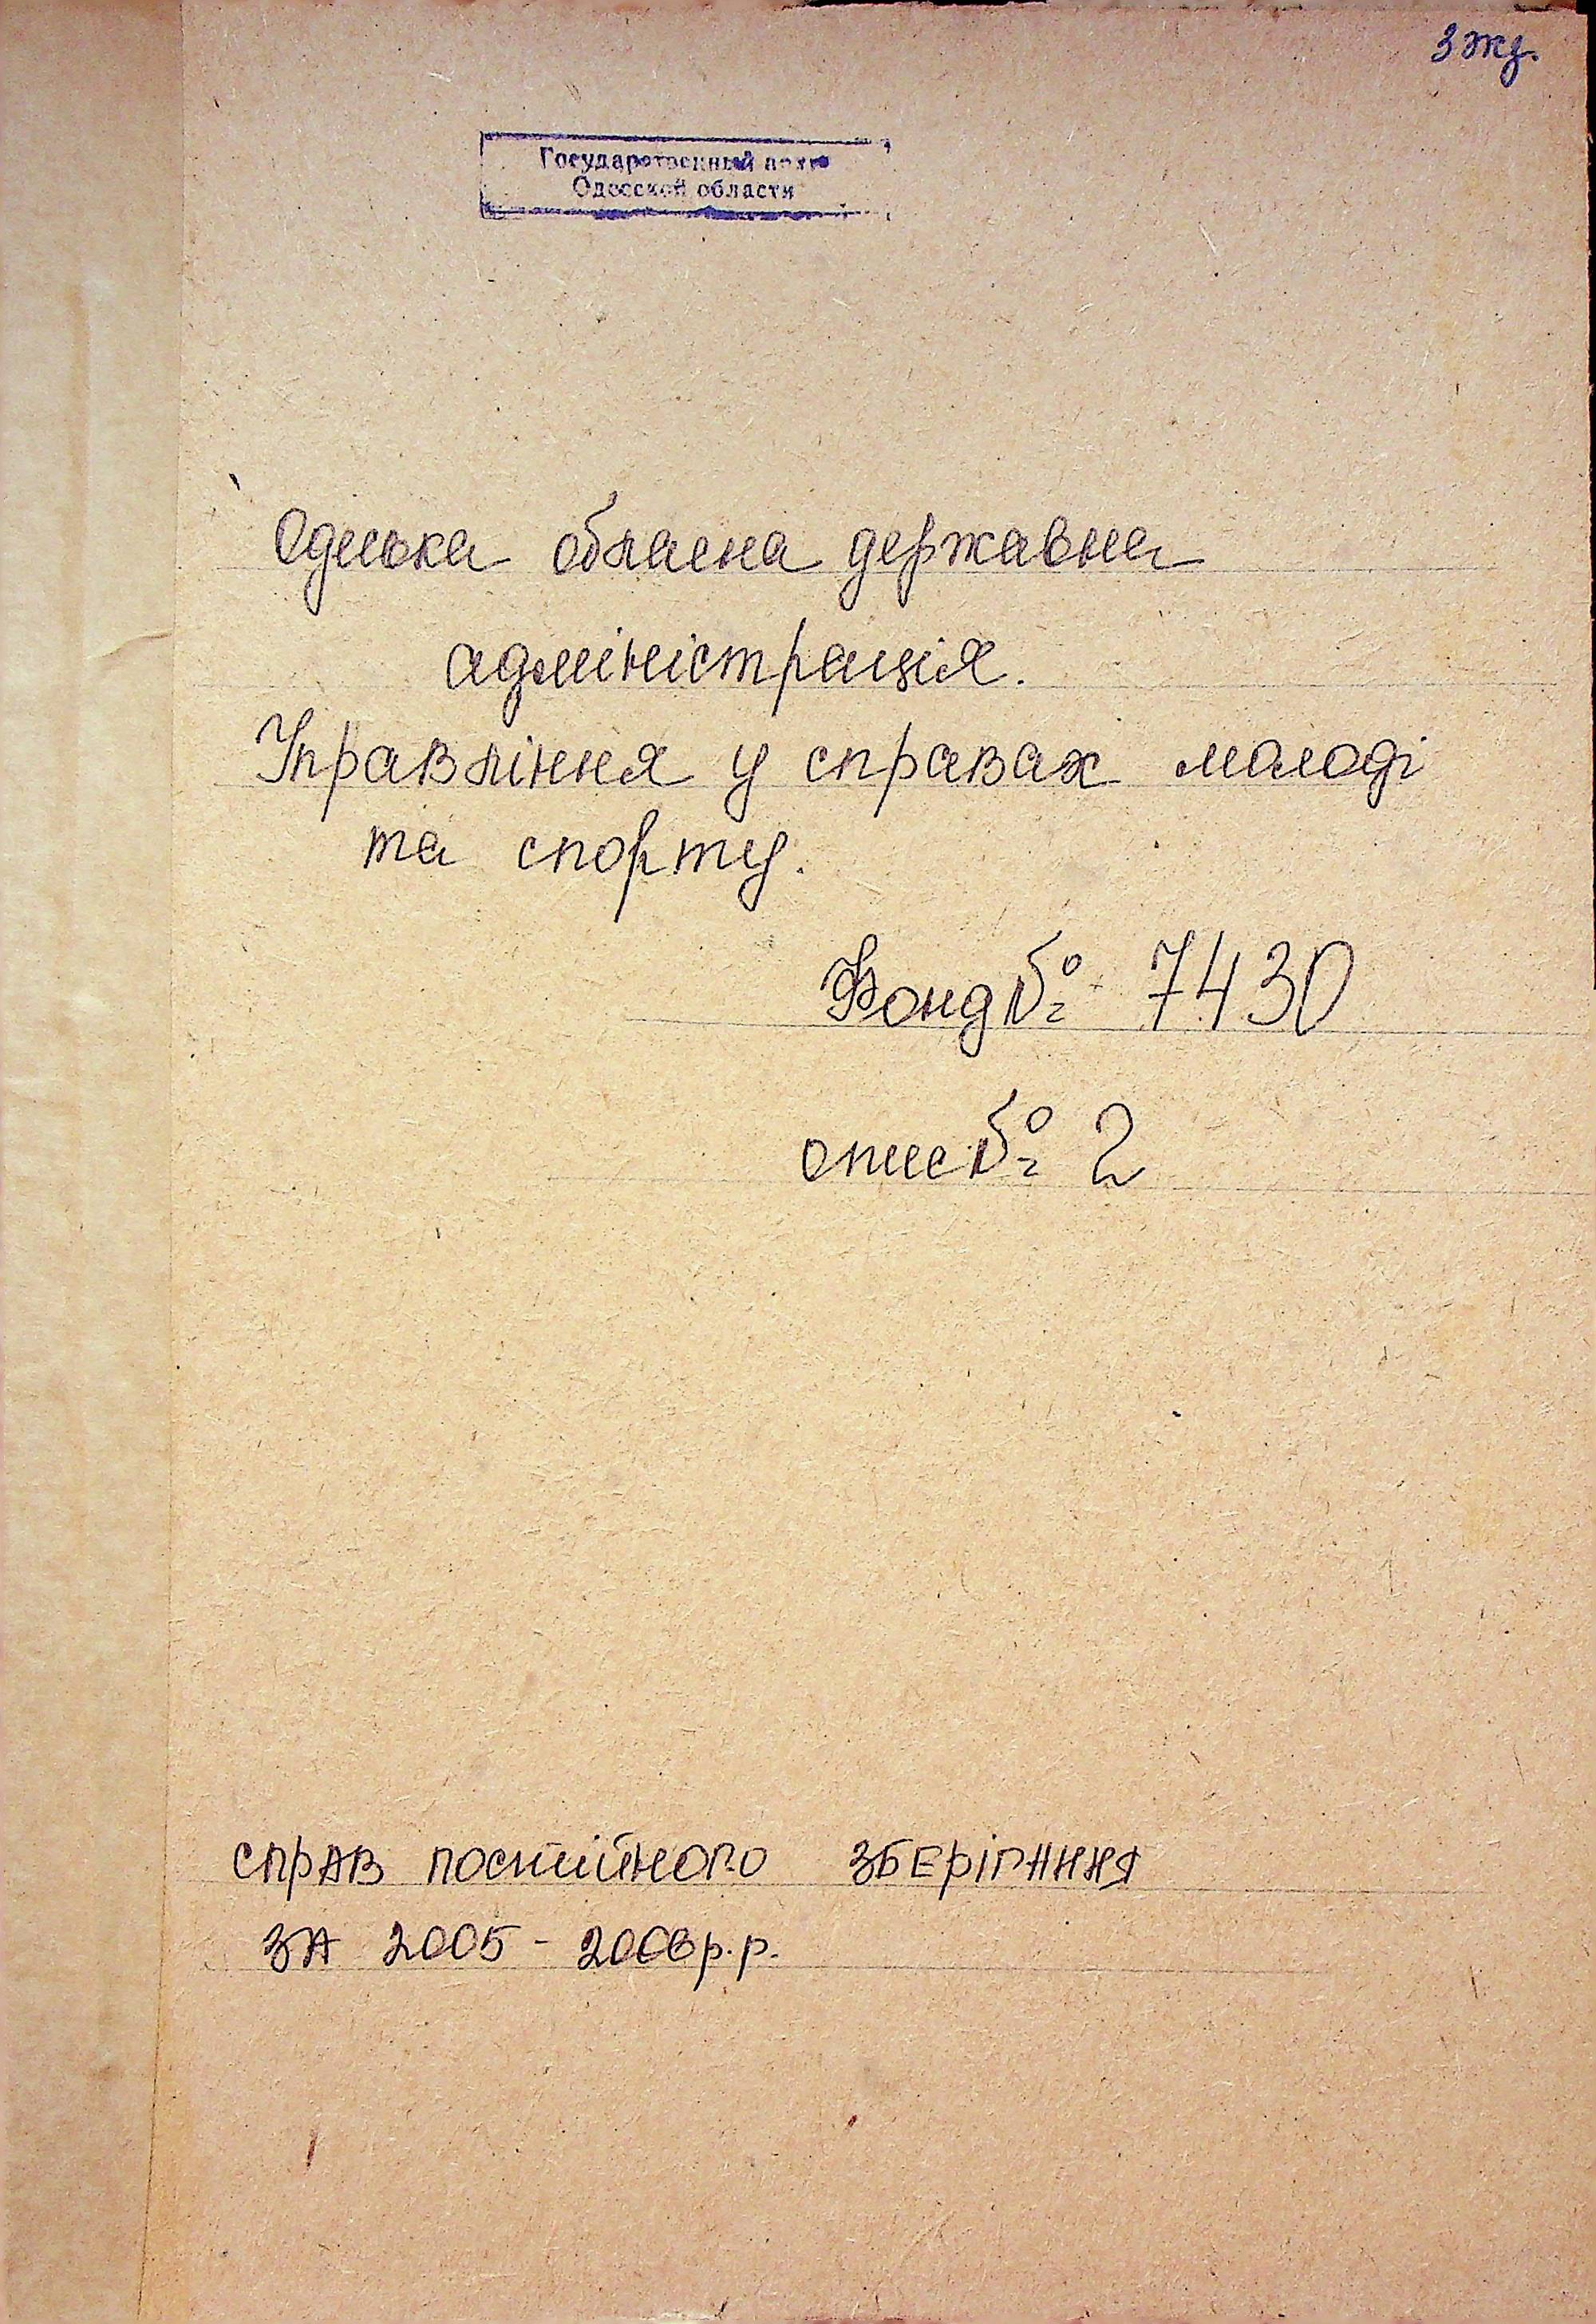 3 экз.
Государственный архив
Одесской области
Одеська обласна державна
адміністрація.
Управління у справах молоді
та спорту.
Фонд № 7430
опис № 2
СПРАВ ПОСТІЙНОГО ЗБЕРІГАННЯ
ЗА 2005 - 2006 р.р.